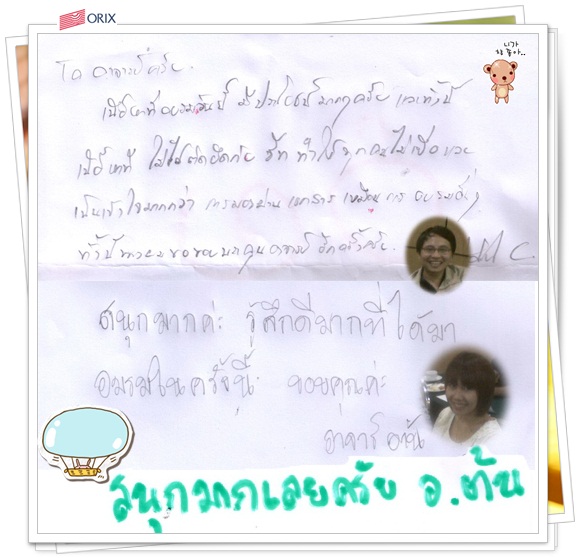 ORIX
니가
참 좋아..
To อาจารย์ครับ.
เนื้อหาที่อบรมวันนี้ มีประโยชน์มากๆครับ และทั้งนี้
เนื้อหาที่ ไม่ได้ ทำให้ทุกคนไม่เบื่อ และ
เป็นเข้าใจมากกว่า การ เอกสาร เหมือนการอบรมอื่นๆ
ทั้งนี้ ขอขอบพระคุณอาจารย์ อีกครั้งครับ.
สนุกมากค่ะ รู้สึกดีมากที่ได้มา
อบรมในครั้งนี้ ขอบคุณค่ะ
อาจารย์ต้น
สนุกมากเลยครับ อ.ต้น